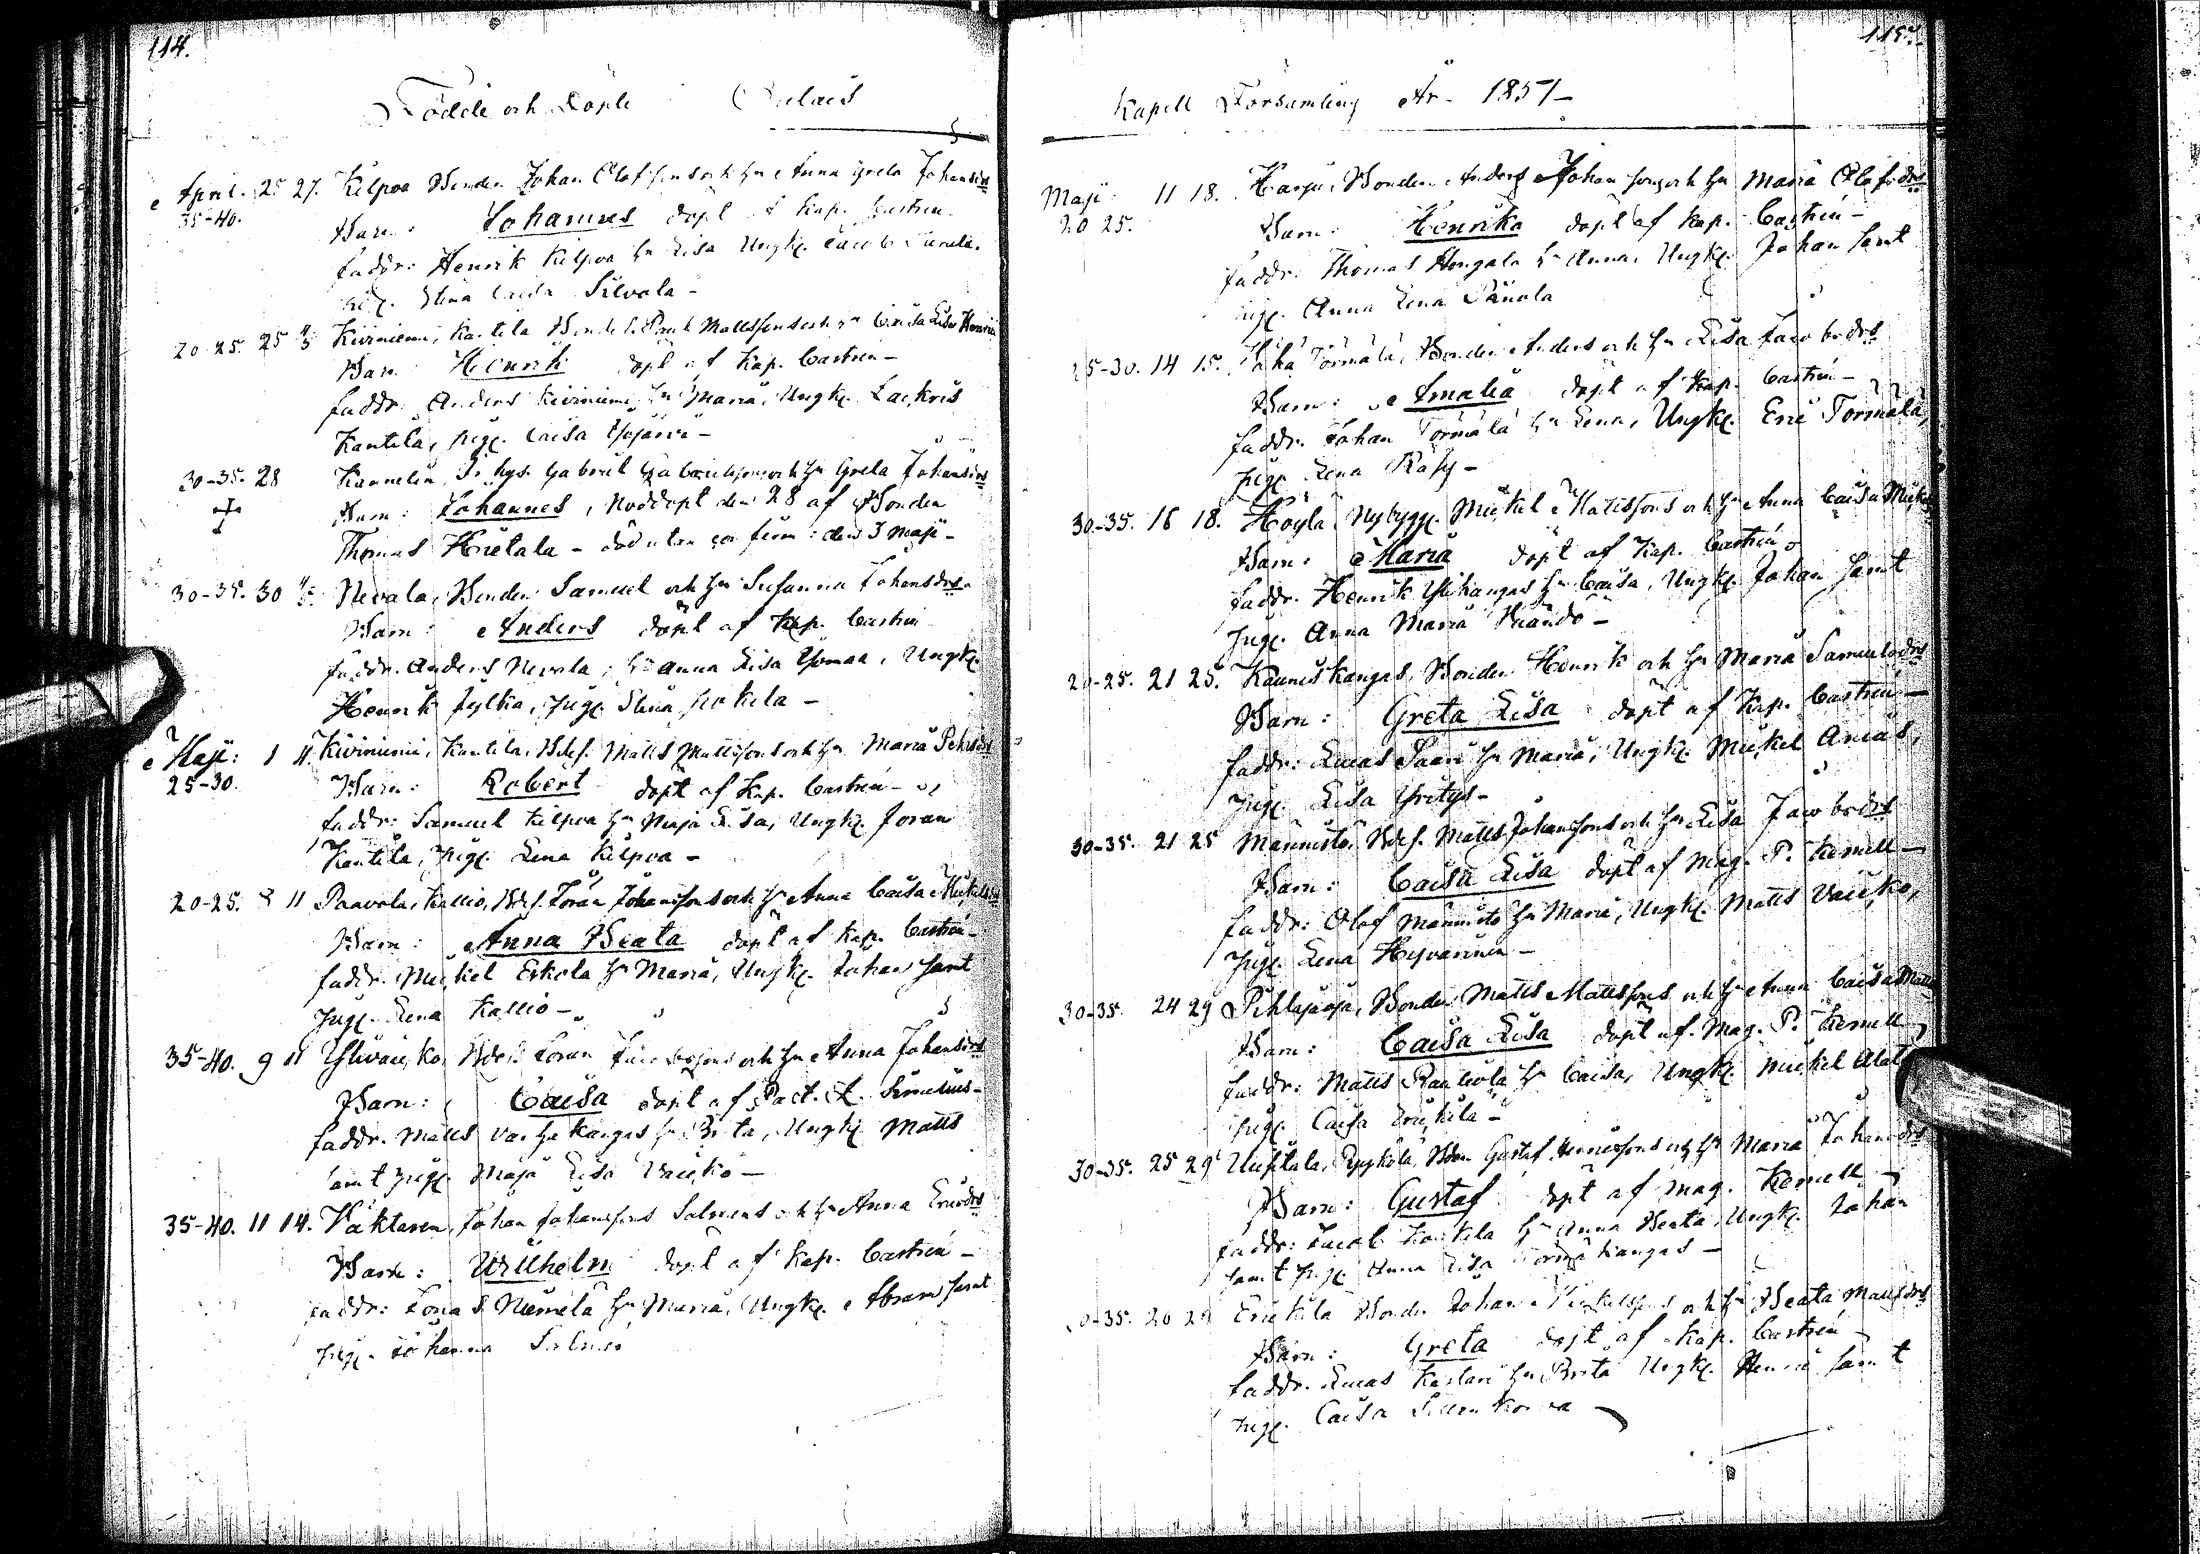 114.
Födde och Döpte Pulais
April. 25 27. Kilpua Bonden Johan Olofsson och h:u Anna Greta Johansdr
35-40.
Barn: Johannes döpt af Kap. Castrén
faddr: Henrik Kilpua h:u Lisa Ungk.
pig. Stina Caisa Silvola -
20-25. 25 4/5 Kiviniemi, Kantila Bonde S. Paul Mattsson och h:u Caisa Lisa
Barn Henrik döpt af Kap. Castrén -
faddr. Anders Kiviniemi h:u Maria, Ungk. Zackris
Kantila, pig. Caisa Ypjärvi -
30-35. 28 Gabriel Gabrielsson och h:u Greta Johansdr
Barn: Johannes, Nöddöpt den 28 af Bonden
Thomas Hietala - död den 3 Maji -
30-35. 30 4/5 Nevala, Bonden Samuel och h:u Susanna Johansdr
Barn: Anders döpt af Kap. Castrén
faddr. Anders Nevala, h:u Anna Lisa Ungk.
Henrik Jylkä, pig. Stina
Maji: 1 4 Kiviniemi, Kantila, Bdes. Matts Mattsson och h:u Maria Pehrsdr
25-30.
Barn: Robert döpt af Kap. Castrén -
faddr: Samuel Kilpua h:u Maja Lisa, Ungk. Joran
Kantila, pig. Lena Kilpua -
20-25. 8 11 Paavola, Kallio, Bdes. Joran Johansson och h:u Anna Caisa Mickelsdr
Barn: Anna Beata döpt af Kap. Castrén -
faddr. Mickel Eskola h:u Maria, Ungk. Johan samt
pig. Lena Kallio -
35-40. 9 11 Yliväicko, Bdes. Joran Jacobsson och h:u Anna Johansdr
Barn: Caisa döpt af Past. A. Simelius -
faddr. Matts h:u Brita, Ungk. Matts
samt pig. Maja Lisa Väicko -
35-40. 11 14. Väktaren, Johan Johansson Salmens och h:u Anna Ericsdr
Barn: Wilhelm döpt af Kap. Castrén -
faddr: Jonas Niemelä h:u Maria, Ungk. Abram samt
pig. Johanna
115.
Kapell Församling År 1857 -
Maji 11 18. Harju, Bonden Anders Johansson och h:u Maria Olofsdr
20 25.
Barn: Henrika döpt af Kap. Castrén -
faddr. Thomas Hongala h:u Anna, Ungk. Johan samt
pig. Anna Lena Pänola
25-30. 14 15. Törmälä, Bonden Anders och h:u Lisa Jacobsdr
Barn: Amalia döpt af Kap. Castrén -
faddr. Johan Törmälä h:u Lena, Ungk. Eric Törmälä,
pig. Lena Rähy -
30-35. 16 18. Höylä, Nybygg. Mickel Mattsson och h:u Anna Caisa
Barn: Maria döpt af Kap. Castrén
faddr. Henrik Ylikangas h:u Caisa, Ungk. Johan samt
pig. Anna Maria
20-25. 21 25. Kauniskangas, Bonden Henrik och h:u Maria Samuelsdr
Barn: Greta Lisa döpt af Kap. Castrén -
faddr: Lucas Saari h:u Maria, Ungk. Mickel Anias,
pig. Lisa Yritys -
30-35. 21 25 Männistö, Bdes. Matts Johansson och h:u Lisa Jacobsdr
Barn: Caisa Lisa döpt af Mag. P. Kemell -
faddr: Olof Männistö h:u Maria, Ungk. Matts Väicko,
pig. Lena Hyvärinen -
30-35. 24 29 Pihlajaoja, Bonden Matts Mattsson och h:u Anna Caisa
Barn: Caisa Lisa döpt af Mag. P. Kemell
faddr: Matts Rautiola h:u Caisa, Ungk. Mickel
pig. Caisa Erickilä -
30-35. 25 29 Gustaf Henricsson och h:u Maria Johansdr
Barn: Gustaf döpt af Mag. Kemell
faddr: Jacob h:u Anna Beata, Ungk. Johan
samt pig. Anna Lisa Törmikangas -
-35. 20 29 Erickilä Bonden Johan och h:u Beata Mattsdr
Barn: Greta döpt af Kap. Castrén
faddr. Lucas h:u Brita Ungk. Henric samt
pig. Caisa